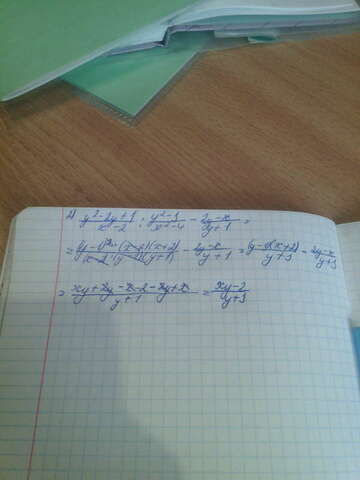 2) (y²-2y+1)/(x-2) : (y²-1)/(x²-4) - (2y-x)/(y+1) =
= ((y-1)²·(x-2)(x+2))/((x-2)(y-1)(y+1)) - (2y-x)/(y+1) = ((y-1)(x+2))/(y+1) - (2y-x)/(y+1)
= (xy+2y-x-2-2y+x)/(y+1) = (xy-2)/(y+1)